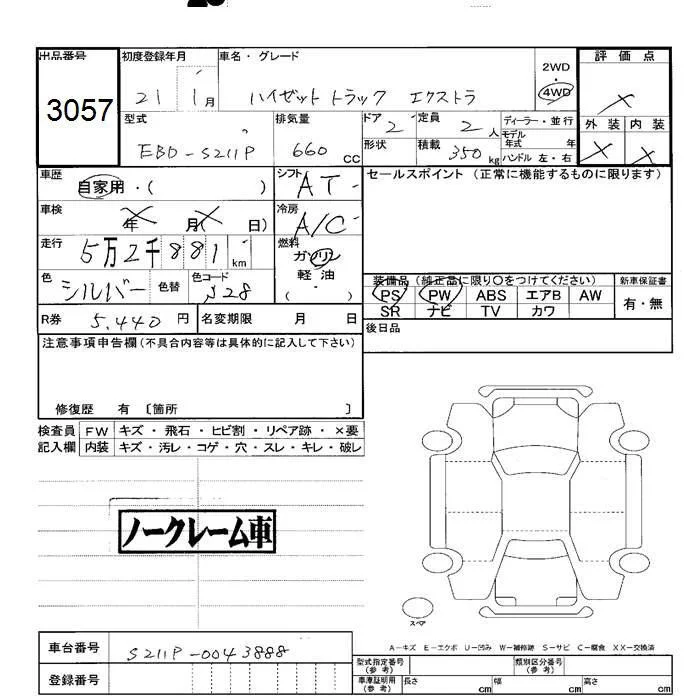 出品番号 3057
初度登録年月 21 1月
車名・グレード ハイゼット トラック エクストラ
2WD・4WD
評価点 ×
外装 × 内装 ×
型式 EBD-S211P
排気量 660 CC
ドア 2
定員 2 人
ディーラー・並行
モデル年式 年
形状
積載 350 kg
ハンドル 左・右
車歴 自家用・( )
シフト AT
セールスポイント (正常に機能するものに限ります)
車検 年 月( 日)
冷房 A/C
走行 5万2千881 km
燃料 ガソリン 軽油 ( )
色 シルバー 色替 色コード S28
装備品 (純正品に限り〇をつけてください)
新車保証書
PS PW ABS エアB AW
SR ナビ TV カワ
有・無
R券 5,440 円 名変期限 月 日
後日品
注意事項申告欄(不具合内容等は具体的に記入して下さい)
修復歴 有 〔箇所 〕
検査員 FW キズ・飛石・ヒビ割・リペア跡・×要
記入欄 内装 キズ・汚レ・コゲ・穴・スレ・キレ・破レ
ノークレーム車
スペア
A-キズ E-エクボ U-凹み W-補修跡 S-サビ C-腐食 XX-交換済
車台番号 S211P-0043888
登録番号
型式指定番号(参考) 類別区分番号(参考)
車庫証明用(参考) 長さ cm 幅 cm 高さ cm